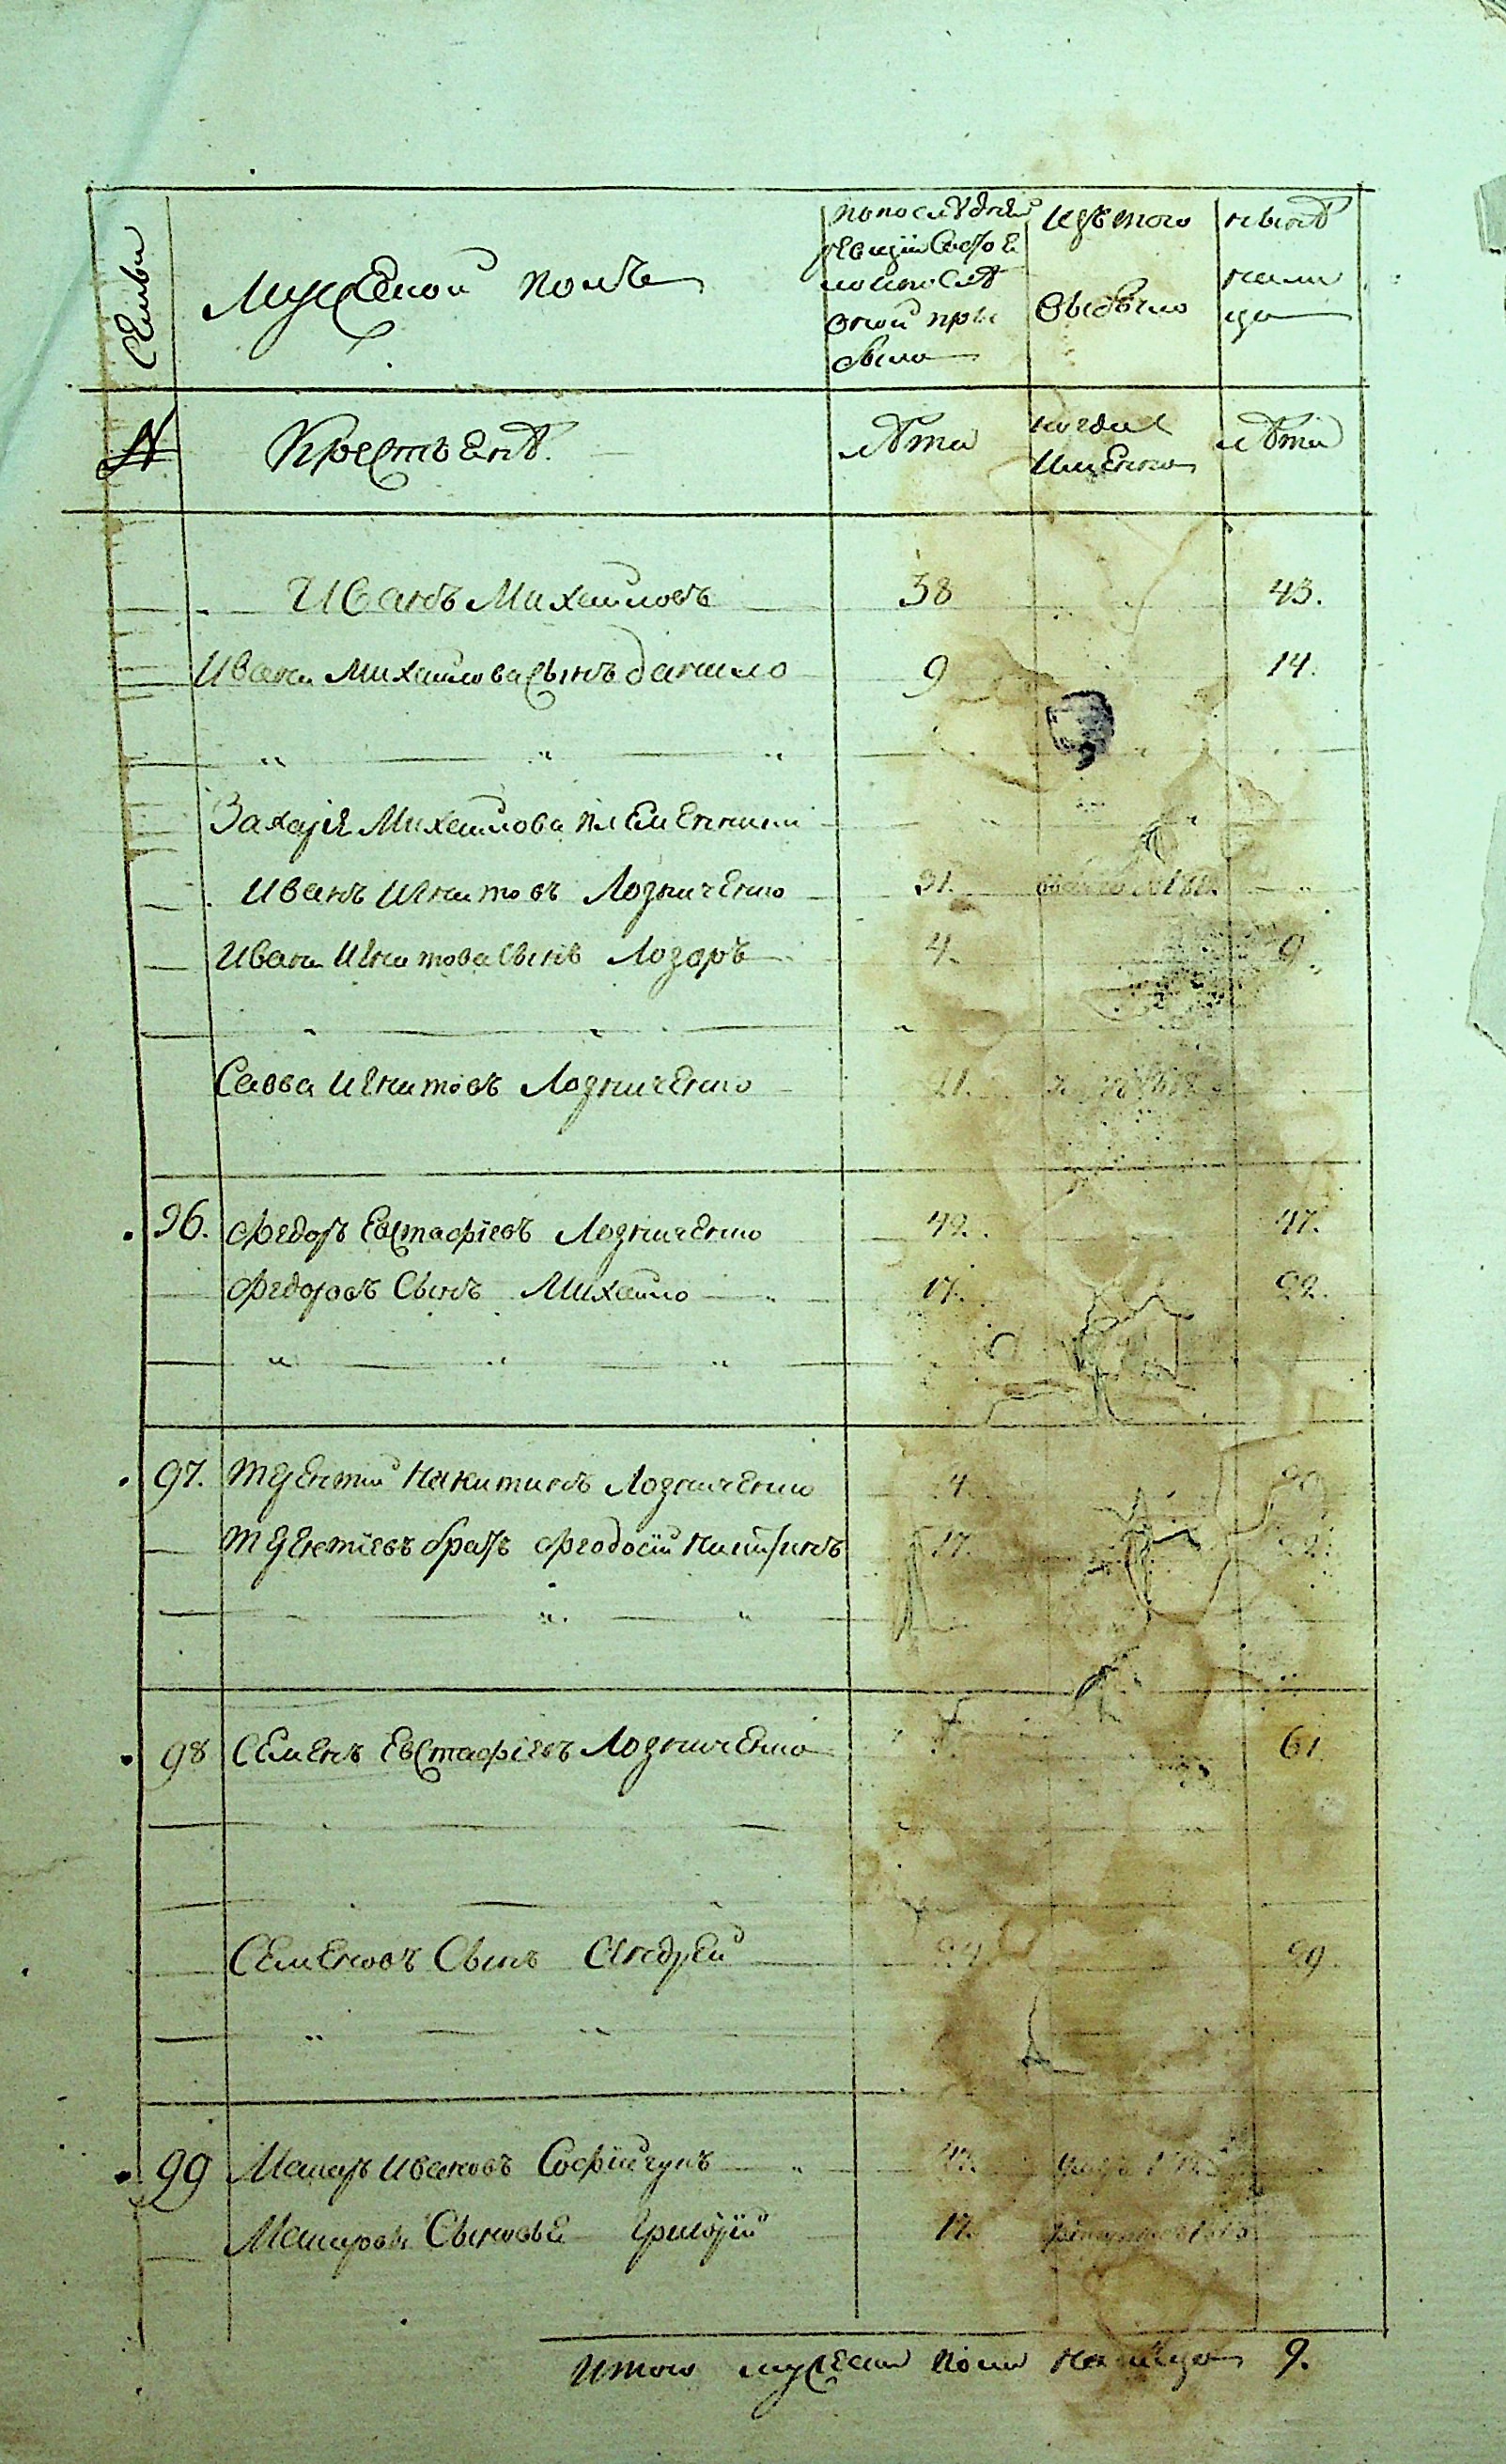 Семьи
Мужеской полъ
По последней ревизїи состояло и после оной прибыло
Изъ того выбыло
Ныне на лицо
№
Крестьяне.
лета
когда именно
лета
Иванъ Михайловъ 38 43.
Ивана Михайлова сынъ данило 9 14.
Захарїя Михайлова племянники
Иванъ Игнатовъ Лозниченко 31.
Ивана Игнатова сынъ Лазаръ 4. 9.
Савва Игнатовъ Лозниченко 21.
96. Федоръ Евстафїевъ Лозниченко 42. 47.
Федоровъ Сынъ Михайло 17. 22.
97. Терентий Никитинъ Лозниченко
Терентїевъ братъ Феодосїй Никитинъ 17. 22.
98 Семенъ Евстафїевъ Лозниченко 61.
Семеновъ Сынъ Андрей 24. 29.
99 Макаръ Ивановъ Софїйчукъ
Макаровы Сыновья Григорїй 17.
Итого мужеска пола на лицо 9.